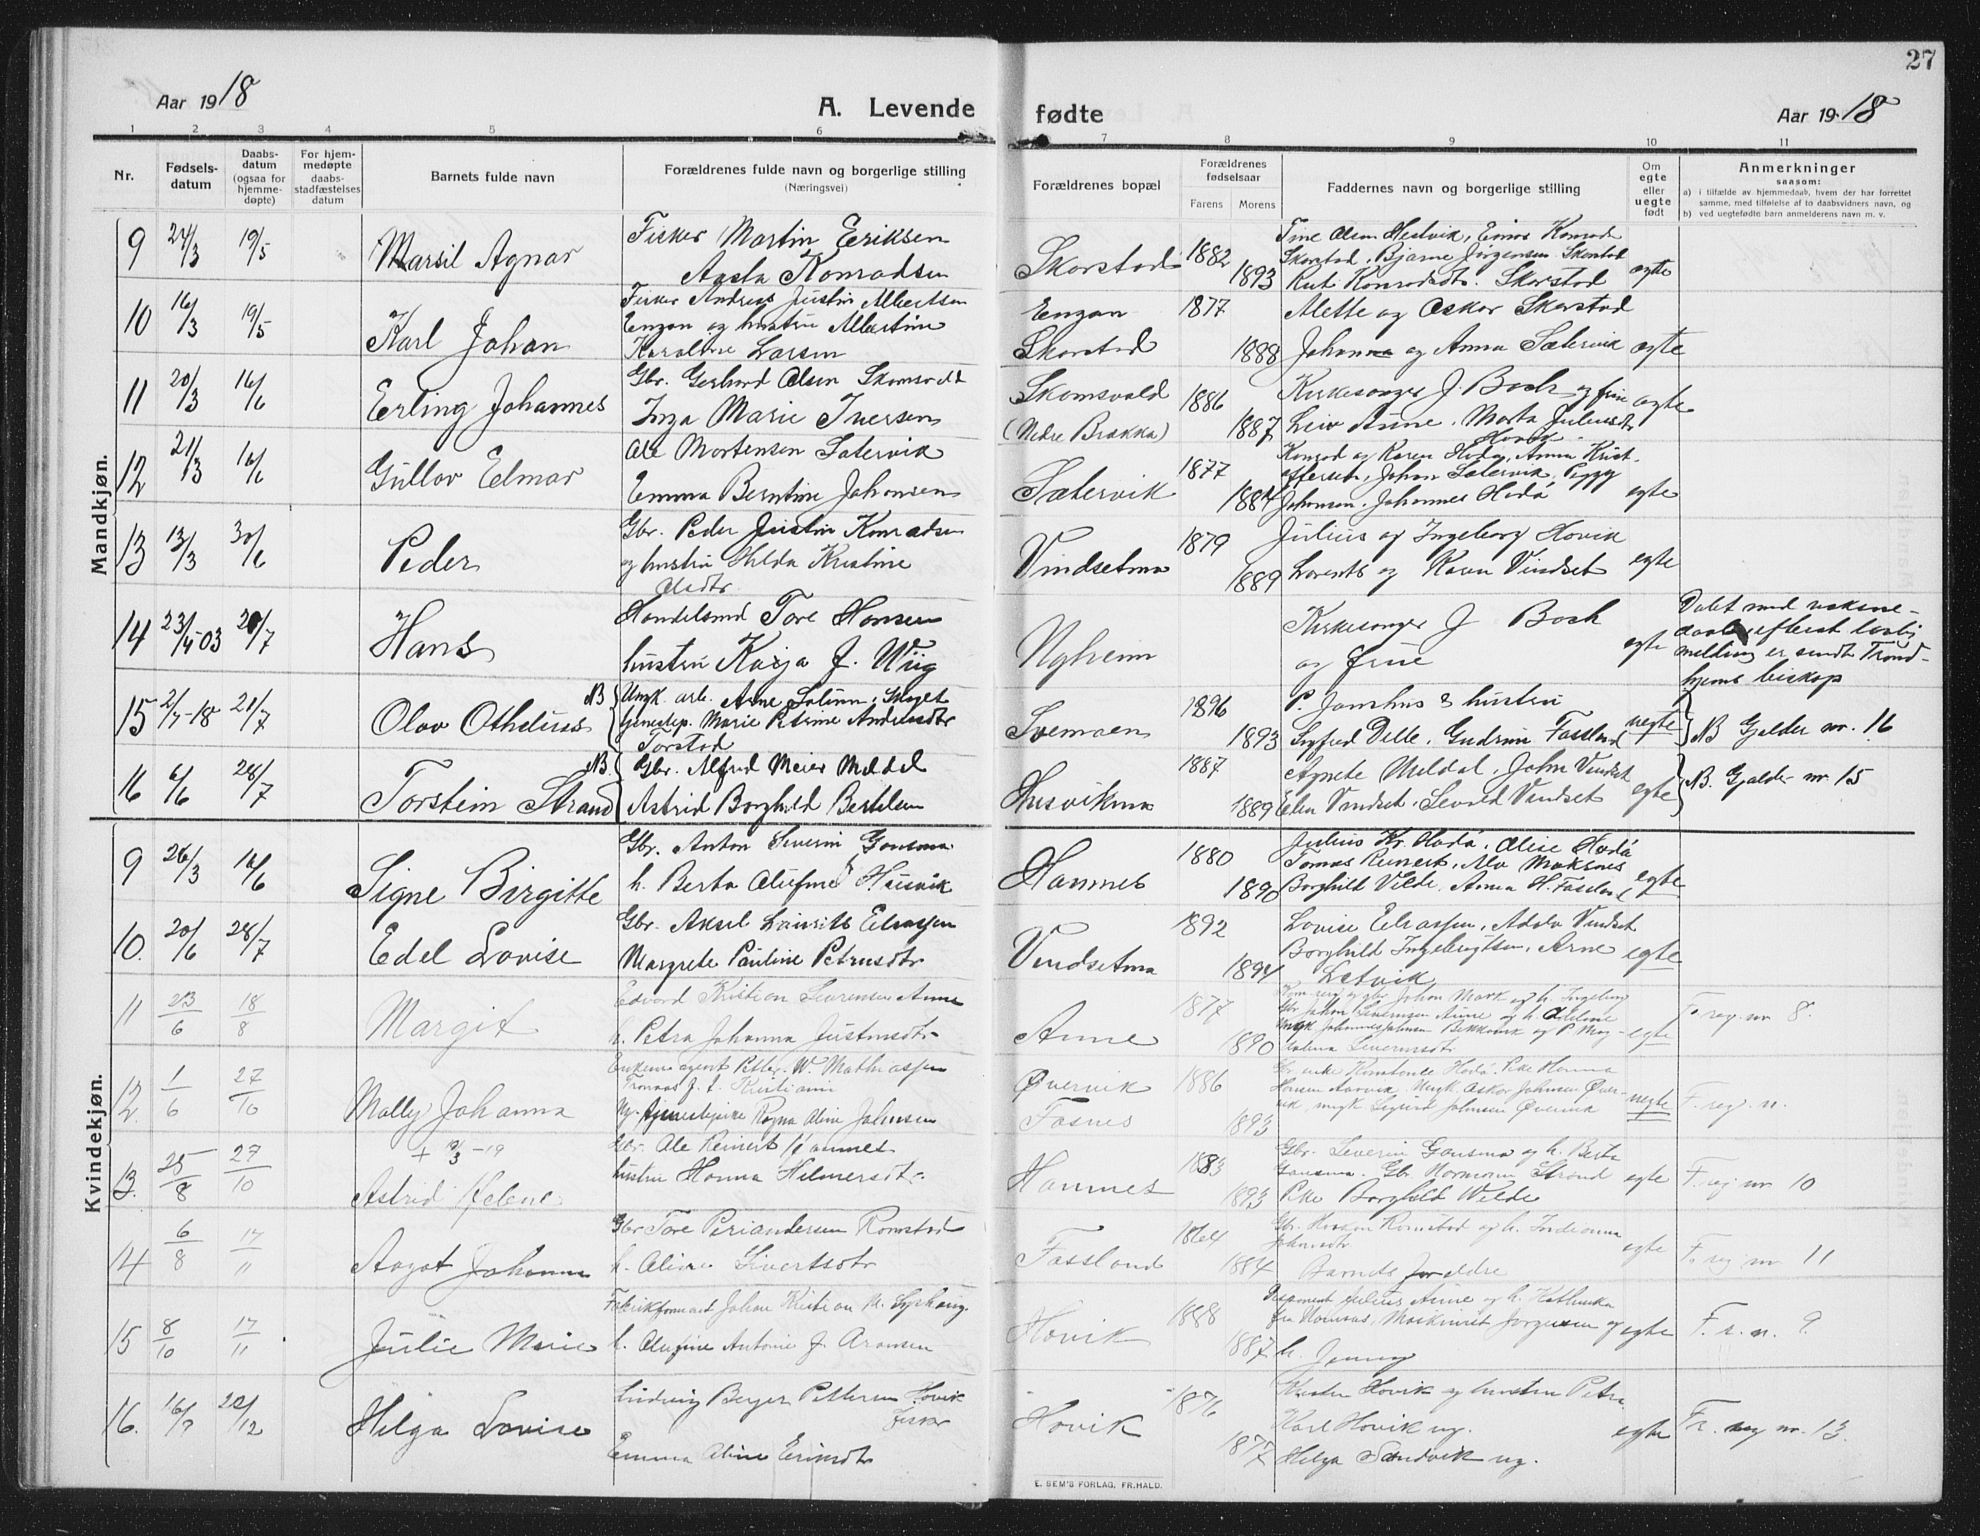 27
Aar 1918
A. Levende
fødte
Aar 1918
1 2 3 4 5 6 7 8 9 10 11
Nr.
Fødsels-
datum
Daabs-
datum
(ogsaa for
hjemme-
døpte)
For hjem-
medøpte
daabs-
stadfæstelses
datum
Barnets fulde navn
Forældrenes fulde navn og borgerlige stilling
(Næringsvei)
Forældrenes bopæl
Forældrenes
fødselsaar
Farens Morens
Faddernes navn og borgerlige stilling
Om
egte
eller
uegte
født
Anmerkninger
saasom:
a) i tilfælde av hjemmedaab, hvem der har forrettet
samme, med tilføielse af to daabsvidners navn, og
b) ved uegtefødte barn anmelderens navn m. v.
Mandkjøn.
9 24/3 19/5 Marsil Agnar
Fisker Martin Eriksen
Aasta Konradsen
Skorstad 1882 1893
Tine Olsen Hestvik, Einar Konrad
Skorstad, Bjarne Jørgensen Skorstad
Rut Konradsdtr. Skorstad
egte
10 16/3 19/5 Karl Johan
Fisker Andreas Justin Albertsen
Engan og hustru Albertine
Karoline Larsen
Engan
Skorstad 1877 1888
Alette og Oskar Skorstad
Johan og Anna Sætervik
egte
11 20/3 16/6 Erling Johannes
Gbr. Gerhard Olsen
Inga Marie Iversen
Skomsvold
(Nedre Brakka) 1886 1887
Kirkesanger J. Bach og frue
Leiv Aune, Marta Juliusdtr
Hovik
egte
12 21/3 16/6 Gullov Elmar
Ole Mortensen Sætervik
Emma Berntine Johansen
Sætervik 1877 1884
Konrad og Karen Hodø, Anna Krist-
offersen, Johan Sætervik, Peggy
Johansen, Johannes Hodø
egte
13 13/3 30/6 Peder
Gbr. Peder Justin Konradsen
og hustru Hilda Kristine
Olsdtr
Vindsetmo 1879 1889
Julius og Ingeborg Hovik
Lorents og Karen Vindset
egte
14 23/4 03 20/7 Hans
Handelsmd Tore Hansen
hustru Kasja J. Wiig
Nyheim
Kirkesanger J Bach
og frue
egte
Døbt med voksne-
daab
melding er sendt Trond-
hjems biskop
15 2/7-18 21/7 Olav Othelius NB
Ungk. arb. Arne
Tjenestep. Marie Petrine Andersdtr
Torstad
Svemoen 1896 1893
P. Jamthus & hustru
Sigfred Delle, Gudrun Fassland
uegte
NB Gjelder nr. 16
16 6/6 28/7 Torstein Strand NB.
Gbr. Alfred Meier Meldal
Astrid Borghild Bertelsen
Husvikmo 1887 1889
Agnete Meldal, John Vindset
Elen Vindset, Sevald Vindset
egte
NB. Gjelder nr 15
Kvindekjøn.
9 26/3 16/6 Signe Birgitte
Gbr. Anton Severin Gansmo
h. Berta Olufine Husvik
Hannes 1880 1890
Julius Kr. Hodø, Alise Hodø
Tomas Reinert,
Borghild Velde, Anna H. Fassland
egte
10. 20/6 28/7 Edel Lovise
Gbr. Aksel Laurits Eliassen
Margrete Pauline Petersdtr
Vindsetmo 1892 1894
Lovise Eliassen, Adolv Vindset
Borghild Ingebrigtsen, Arne
Letvik
egte
11 23/6 18/8 Margit
Edvard Kristian Severinsen Aune
h. Petra Johanna Justinsdtr
Aune 1877 1890
Johan Mork og h. Ingeborg
Gbr Johan Severinsen Aune og h.
Ungk Johannes Johnsen Bekkavik og P. May-
Severinsdtr
egte
F. reg. nr 8.
12. 1/6 27/10 Molly Johanna
+ 12/3-19
agent Petter W. Mathiassen
Kristiania
Ug. tjenestepike Ragna Aline Johnsen
Øvervik
Fosnes 1886 1893
Gbr enke Konstanse Hodø. Pike Hanna
Hansen Aarvik. Ungk Oskar Johnsen Øver-
vik, ungk Sigurd Johnsen Øvervik
uegte
F. reg. n.
13. 25/8 27/10 Astrid Helene
Gbr. Ole Reinert Hannes
hustru Hanna Hilmersdtr.
Hannes 1883 1893
Gbr. Severin Gansmo og h. Berta
Gansmo. Gbr Normann Strand
Pike Borghild Velde
egte
F. reg. nr 10
14 6/8 17/11 Aagot Johanna
Gbr Tore Periandersen Romstad
h. Aline Sivertsdtr
Fassland 1864 1884
Gbr. Romstad og h. Indianna
Johnsdtr
Barnets forældre
egte
F. reg nr 11
15 8/10 17/11 Julie Marie
Johan Kristian N. Syphaug.
h. Olufine Antonie J. Aronsen
Hovik 1888 1887
Disponent Julius Aune og h. Kathinka
fra Namsos, Maskinist Jørgensen og
h. Jenny
egte
F. r. n. 9.
16. 16/9 22/12 Helga Lovise
Ludvig Berger Pettersen Hovik
Fisker
Emma Oline Eriksdtr
Hovik 1876 1877
Hovik og hustru Petra
Karl Hovik ug.
Helga Sandvik ug.
egte
Fr. reg nr. 13.
E. SEM'S FORLAG, FR.HALD.